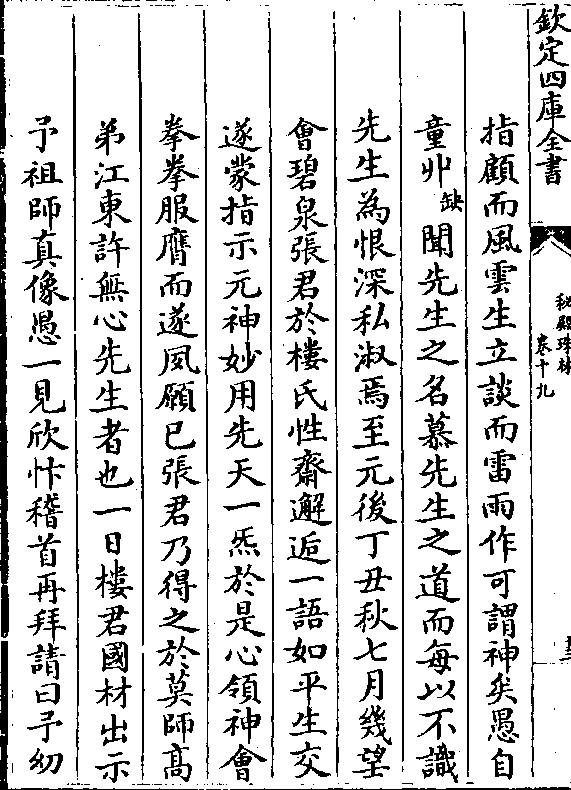 欽定四庫全書
秘殿珠林
卷十九
指顧而風雲生立談而雷雨作可謂神矣愚自
童丱缺聞先生之名慕先生之道而每以不識
先生為恨深私淑焉至元後丁丑秋七月幾望
會碧泉張君於樓氏性齋邂逅一語如平生交
遂蒙指示元神妙用先天一炁於是心領神會
拳拳服膺而遂夙願已張君乃得之於莫師高
弟江東許無心先生者也一日樓君國材出示
予祖師真像愚一見欣忭稽首再拜請曰予幼